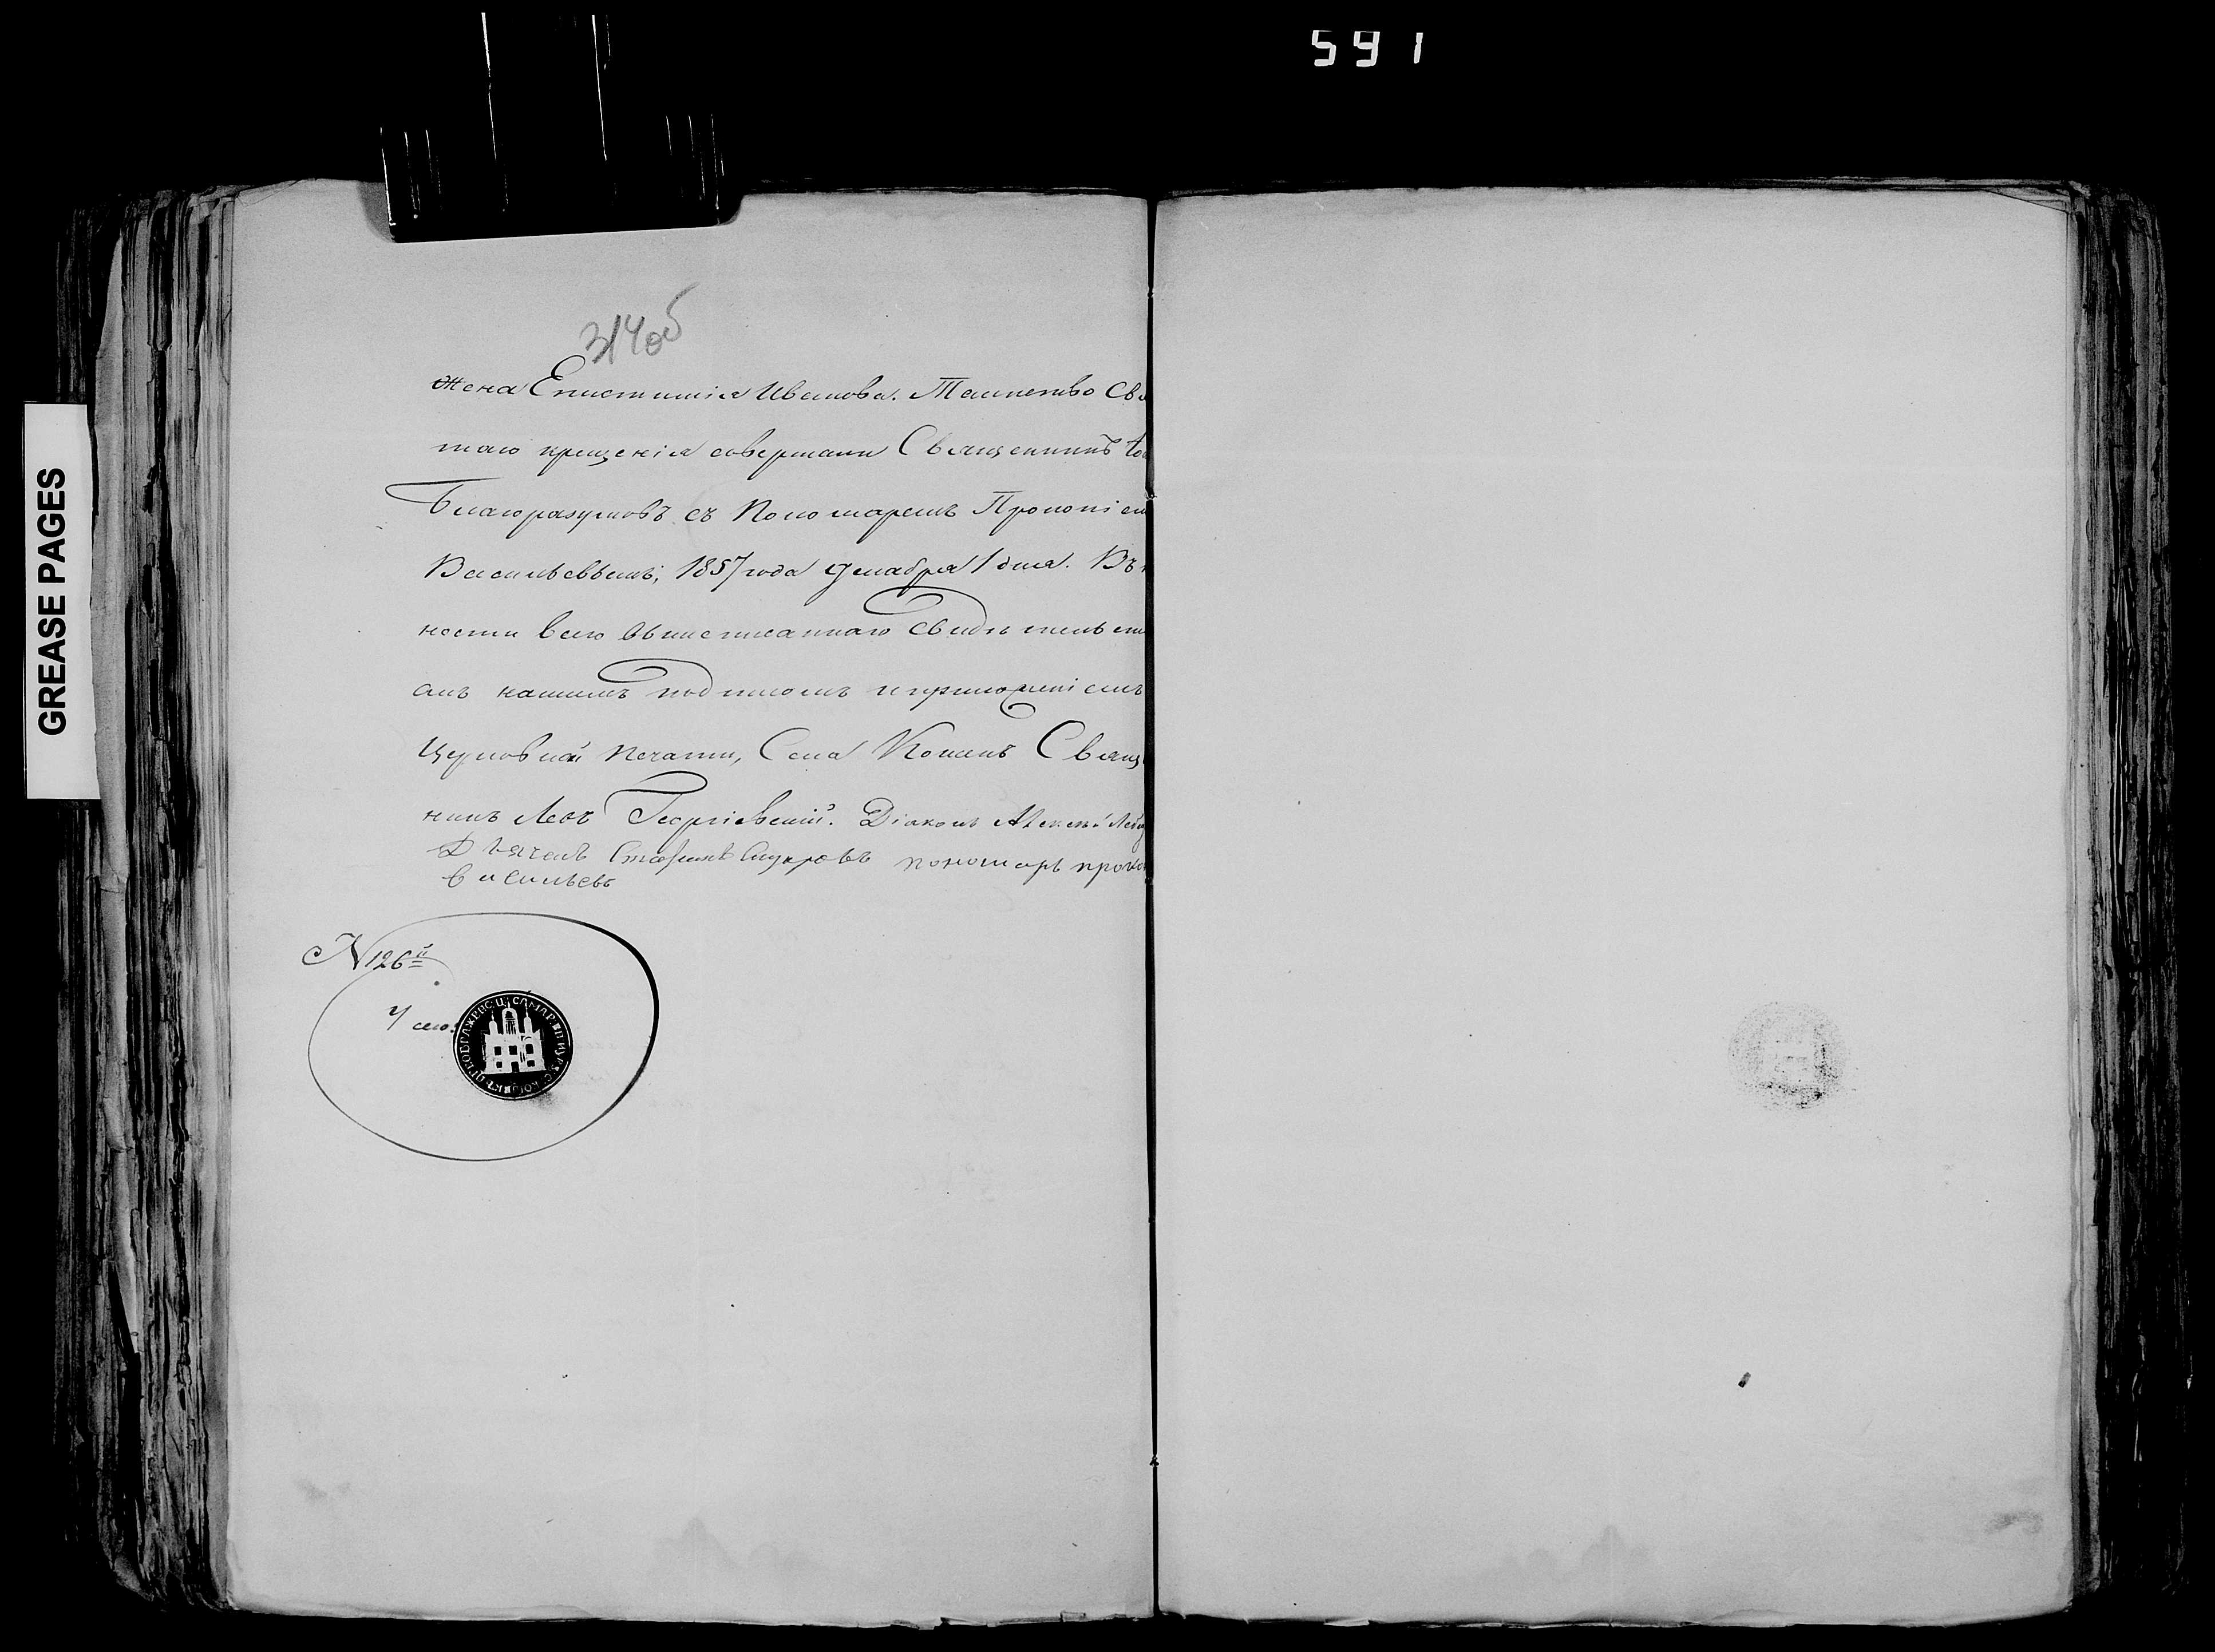 591
GREASE PAGES
314об
Жена Епистимiя Иванова. Таинство Свя
таго крещенiя совершали Священникъ
Благоразумовъ съ Пономаремъ Прокопiем
Васильевымъ; 1857 года декабря 1 дня. Въ
ности всего вышеписаннаго свидѣтельст
нашимъ подписомъ и приложенiемъ
Церковной печати, Села Кошекъ Свящ
никъ Левъ Георгiевскiй. Дiаконъ Алексѣй
Дьячекъ пономарь проко
Васильевъ
N 126й